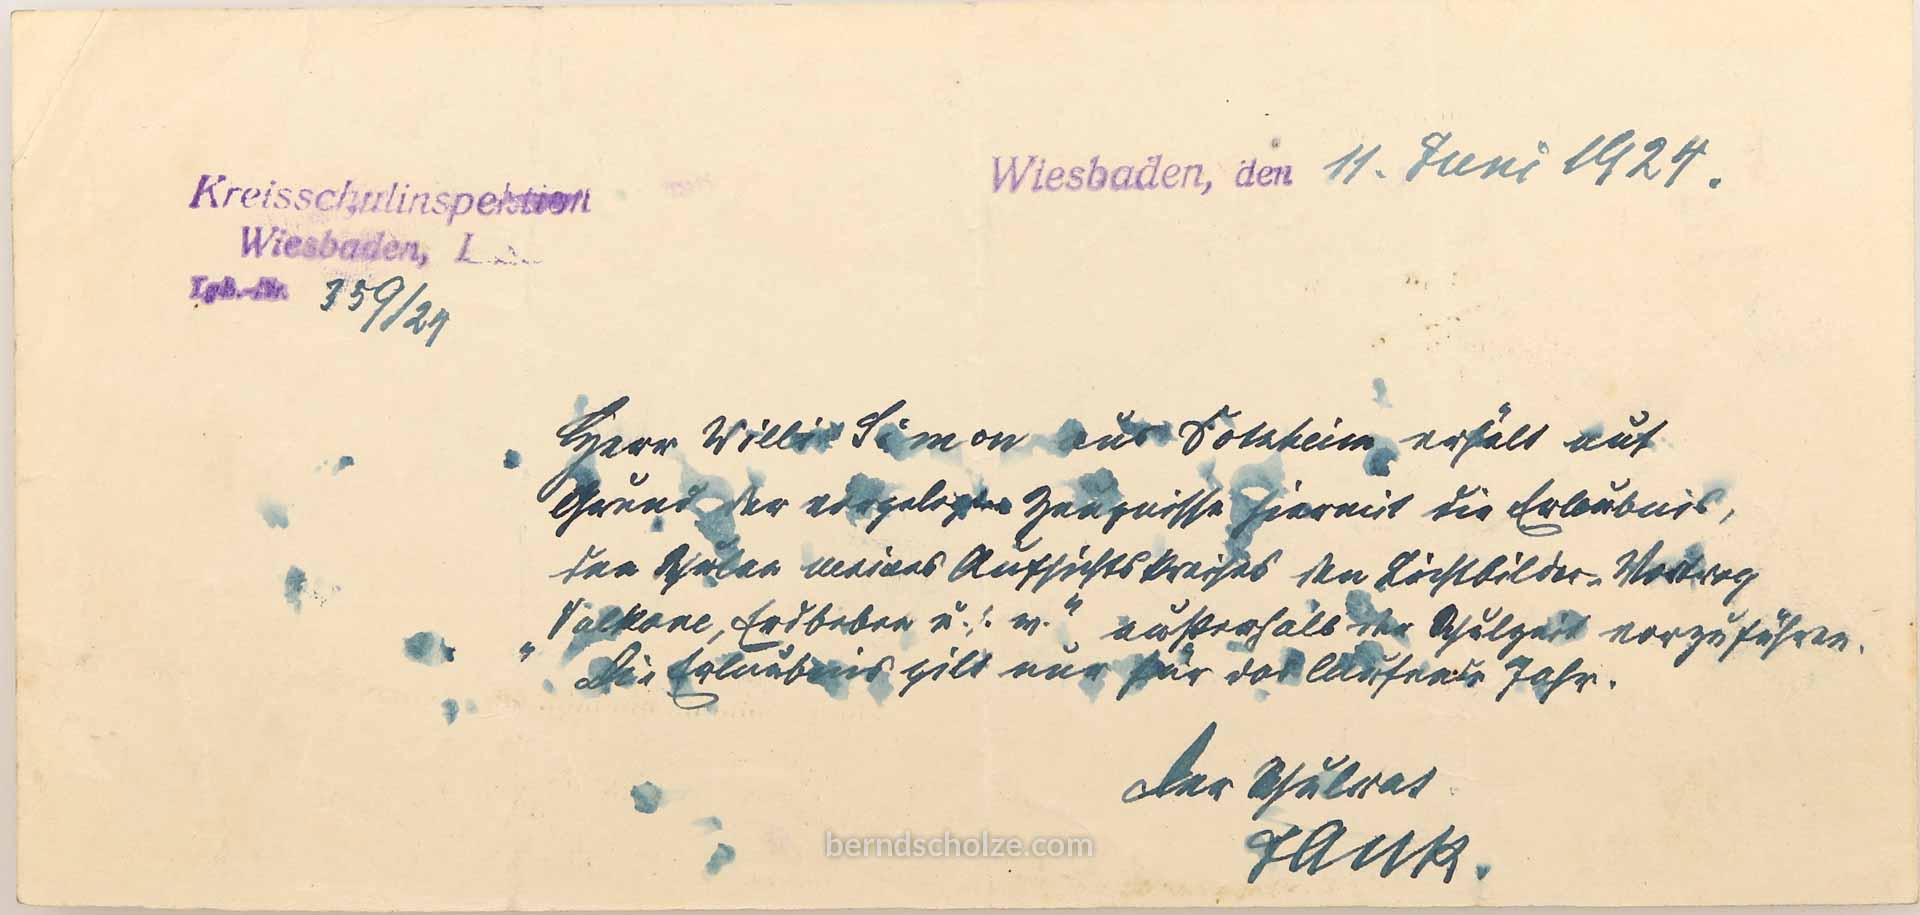 Kreisschulinspektion
Wiesbaden, L
Tgb.-Nr. 359/24
Wiesbaden, den 11. Juni 1924.
Herr Willi Simon aus Dotzheim erhält auf
Grund der vorgelegten Zeugnisse hiermit die Erlaubnis,
den Schulen meines Aufsichtskreises den Lichtbilder-Vortrag
"Vulkane, Erdbeben u.s.w." außerhalb der Schulzeit vorzuführen.
Die Erlaubnis gilt nur für das laufende Jahr.
Der Schulrat
berndscholze.com